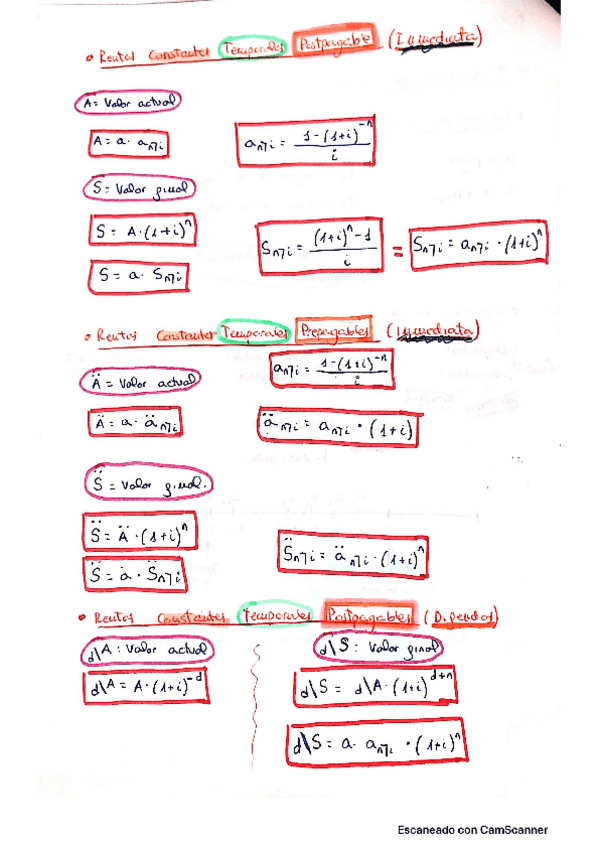 • Rentas Constantes Temporales Postpagable (Inmediata)
A = Valor actual
A = a · an⌉i
an⌉i = 1-(1+i)^-n / i
S = Valor final
S = A·(1+i)^n
Sn⌉i = (1+i)^n-1 / i = Sn⌉i = an⌉i · (1+i)^n
S = a · Sn⌉i
• Rentas Constantes Temporales Prepagables (Inmediata)
an⌉i = 1-(1+i)^-n / i
Ä = Valor actual
Ä = a · än⌉i
än⌉i = an⌉i · (1+i)
S̈ = Valor final.
S̈ = Ä · (1+i)^n
S̈n⌉i = än⌉i · (1+i)^n
S̈ = a · S̈n⌉i
• Rentas Constantes Temporales Postpagables (Diferidas)
d\A : Valor actual
d\S : Valor final
d\A = A·(1+i)^-d
d\S = d\A·(1+i)^d+n
d\S = a · an⌉i · (1+i)^n
Escaneado con CamScanner